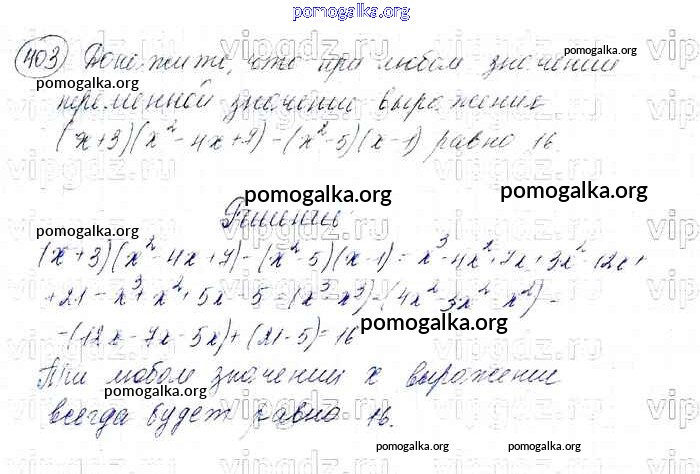 pomogalka.org
403 Докажите, что при любом значении
pomogalka.org
переменной значение выражения
(x+3)(x²-4x+7)-(x²-5)(x-1) равно 16
pomogalka.org
pomogalka.org
pomogalka.org
Решение:
pomogalka.org
(x+3)(x²-4x+7)-(x²-5)(x-1)=x³-4x²+7x+3x²-12x+
+21-x³+x²+5x-5=(x³-x³)-(4x²-3x²-x²)-
-(12x-7x-5x)+(21-5)=16
pomogalka.org
При любом значении x выражение
pomogalka.org
всегда будет равно 16.
pomogalka.org
pomogalka.org